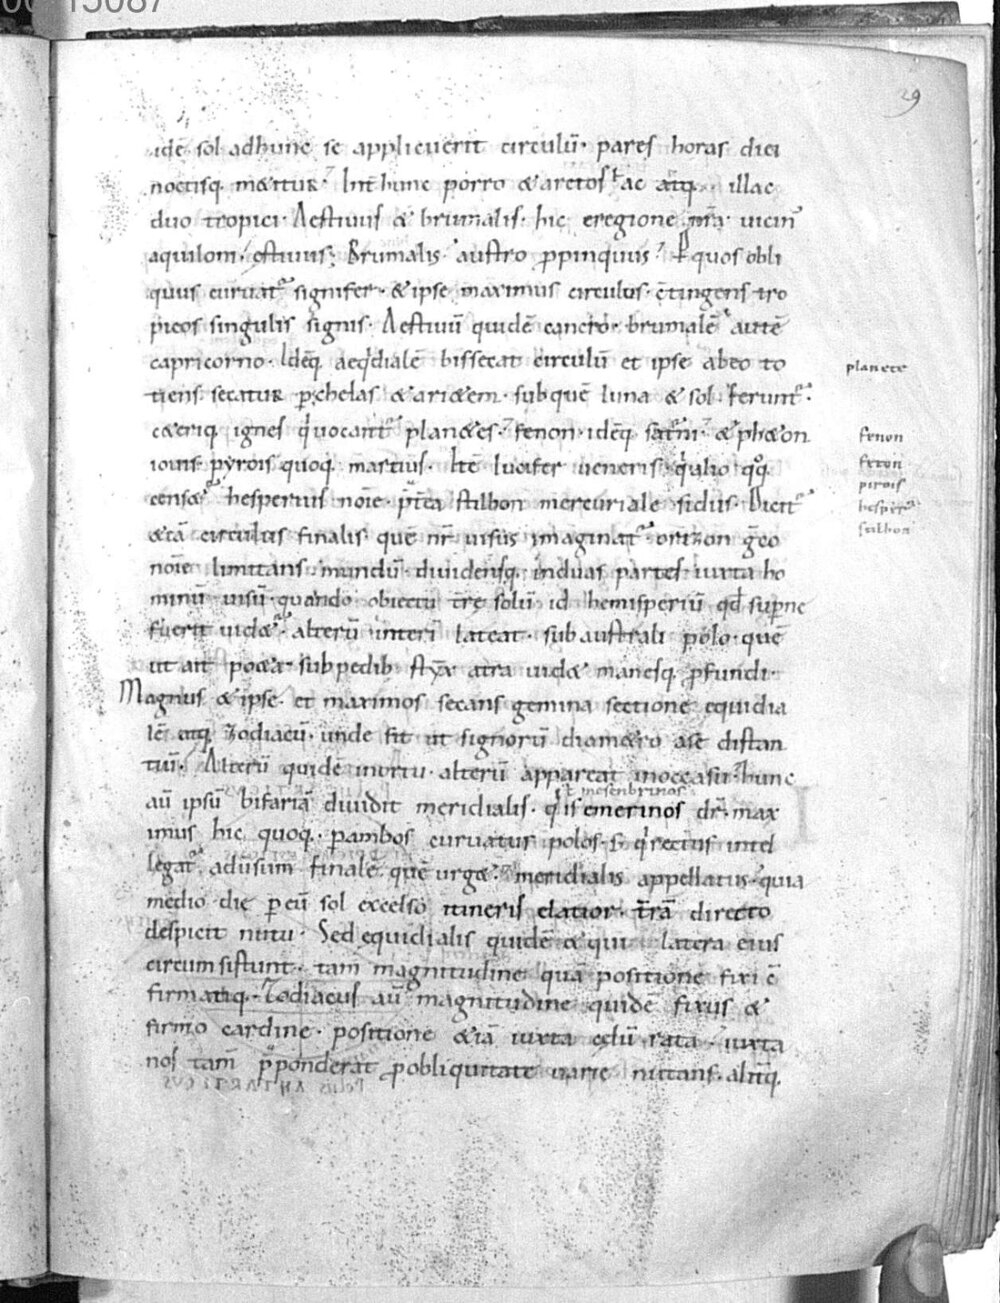 15087
29
idē sol adhunc se applicuerit circulū· pares horas diei
noctisq· metitur· Int hunc porro & arctos hac atq· illac
duo tropici· Aestiuus & brumalis· hic eregione nr̄a uicin
aquiloni· ęstiuus; Brumalis austro ꝓpinquus· P quos obli
quus curuat signifer· & ipse maximus circulus· c̄tingens tro
picos singulis signis· Aestiuū quidē cancro· brumalē autē
capricorno· Idēq· aeqdialē bissecat circulū et ipse abeo to
tiens secatur p chelas & arietem· sub quē luna & sol ferunt·
planete
c&eriq ignes q̇uocant plan&es· fenon· idēq saturni· & ph&on
fenon
iouis· pyrois quoq· martius· Itē lucifer ueneris· q̇alio qoq
feton
pirois
cens& hesperus noīe· pt̄ea stilbon mercuriale sidus· Dicit
hesperꝰ
stilbon
&iā circulus finalis quē nr̄ uisus imaginat· orizon greo
noīe limitans mundū· diuidensq· induas partes iuxta ho
minū uisū· quando obiectu tr̄ę solū id hemisperiū qd̄ supne
fuerit uide&· alterū interi lateat· sub australi polo· quē
ut ait po&a· sub pedib· styx atra uid& manesq ꝓfundi·
Magnus & ipse· et maximos secans gemina sectione equidia
lē atq zodiacū· unde fit ut signorū diam&ro a se distan
tiū· Alterū quidē inortu· alterū appareat inoccasu· hunc
ł mesenbrinos
aū ipsū bifariā diuidit meridialis· q̇ isemerinos dr̄· max
imus hic quoq· pambos curuatus polos· s· q̇ rectus intel
legat· adusum finalē quē urg&· meridialis appellatus· quia
medio die p eū sol excelso itineris elatior· tr̄ā directo
despicit nutu· Sed equidialis quidē & qui latera eius
circumsistunt· tam magnitudine quā positione fixi ē
firmatiq· Zodiacus aū magnitudine quidē fixus &
firmo cardine· positione &iā iuxta cęlū rata· iuxta
nos tam̄ p̄ponderat ꝓobliquitate uarie nutans· aliq·